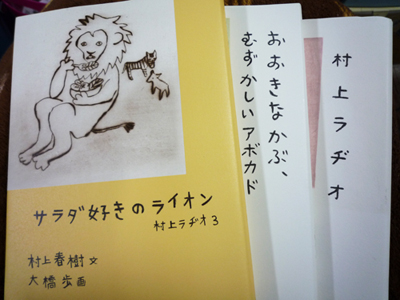 サラダ好きのライオン
村上ラヂオ3
村上春樹文
大橋歩画
おおきなかぶ、
むずかしいアボカド
村上ラヂオ